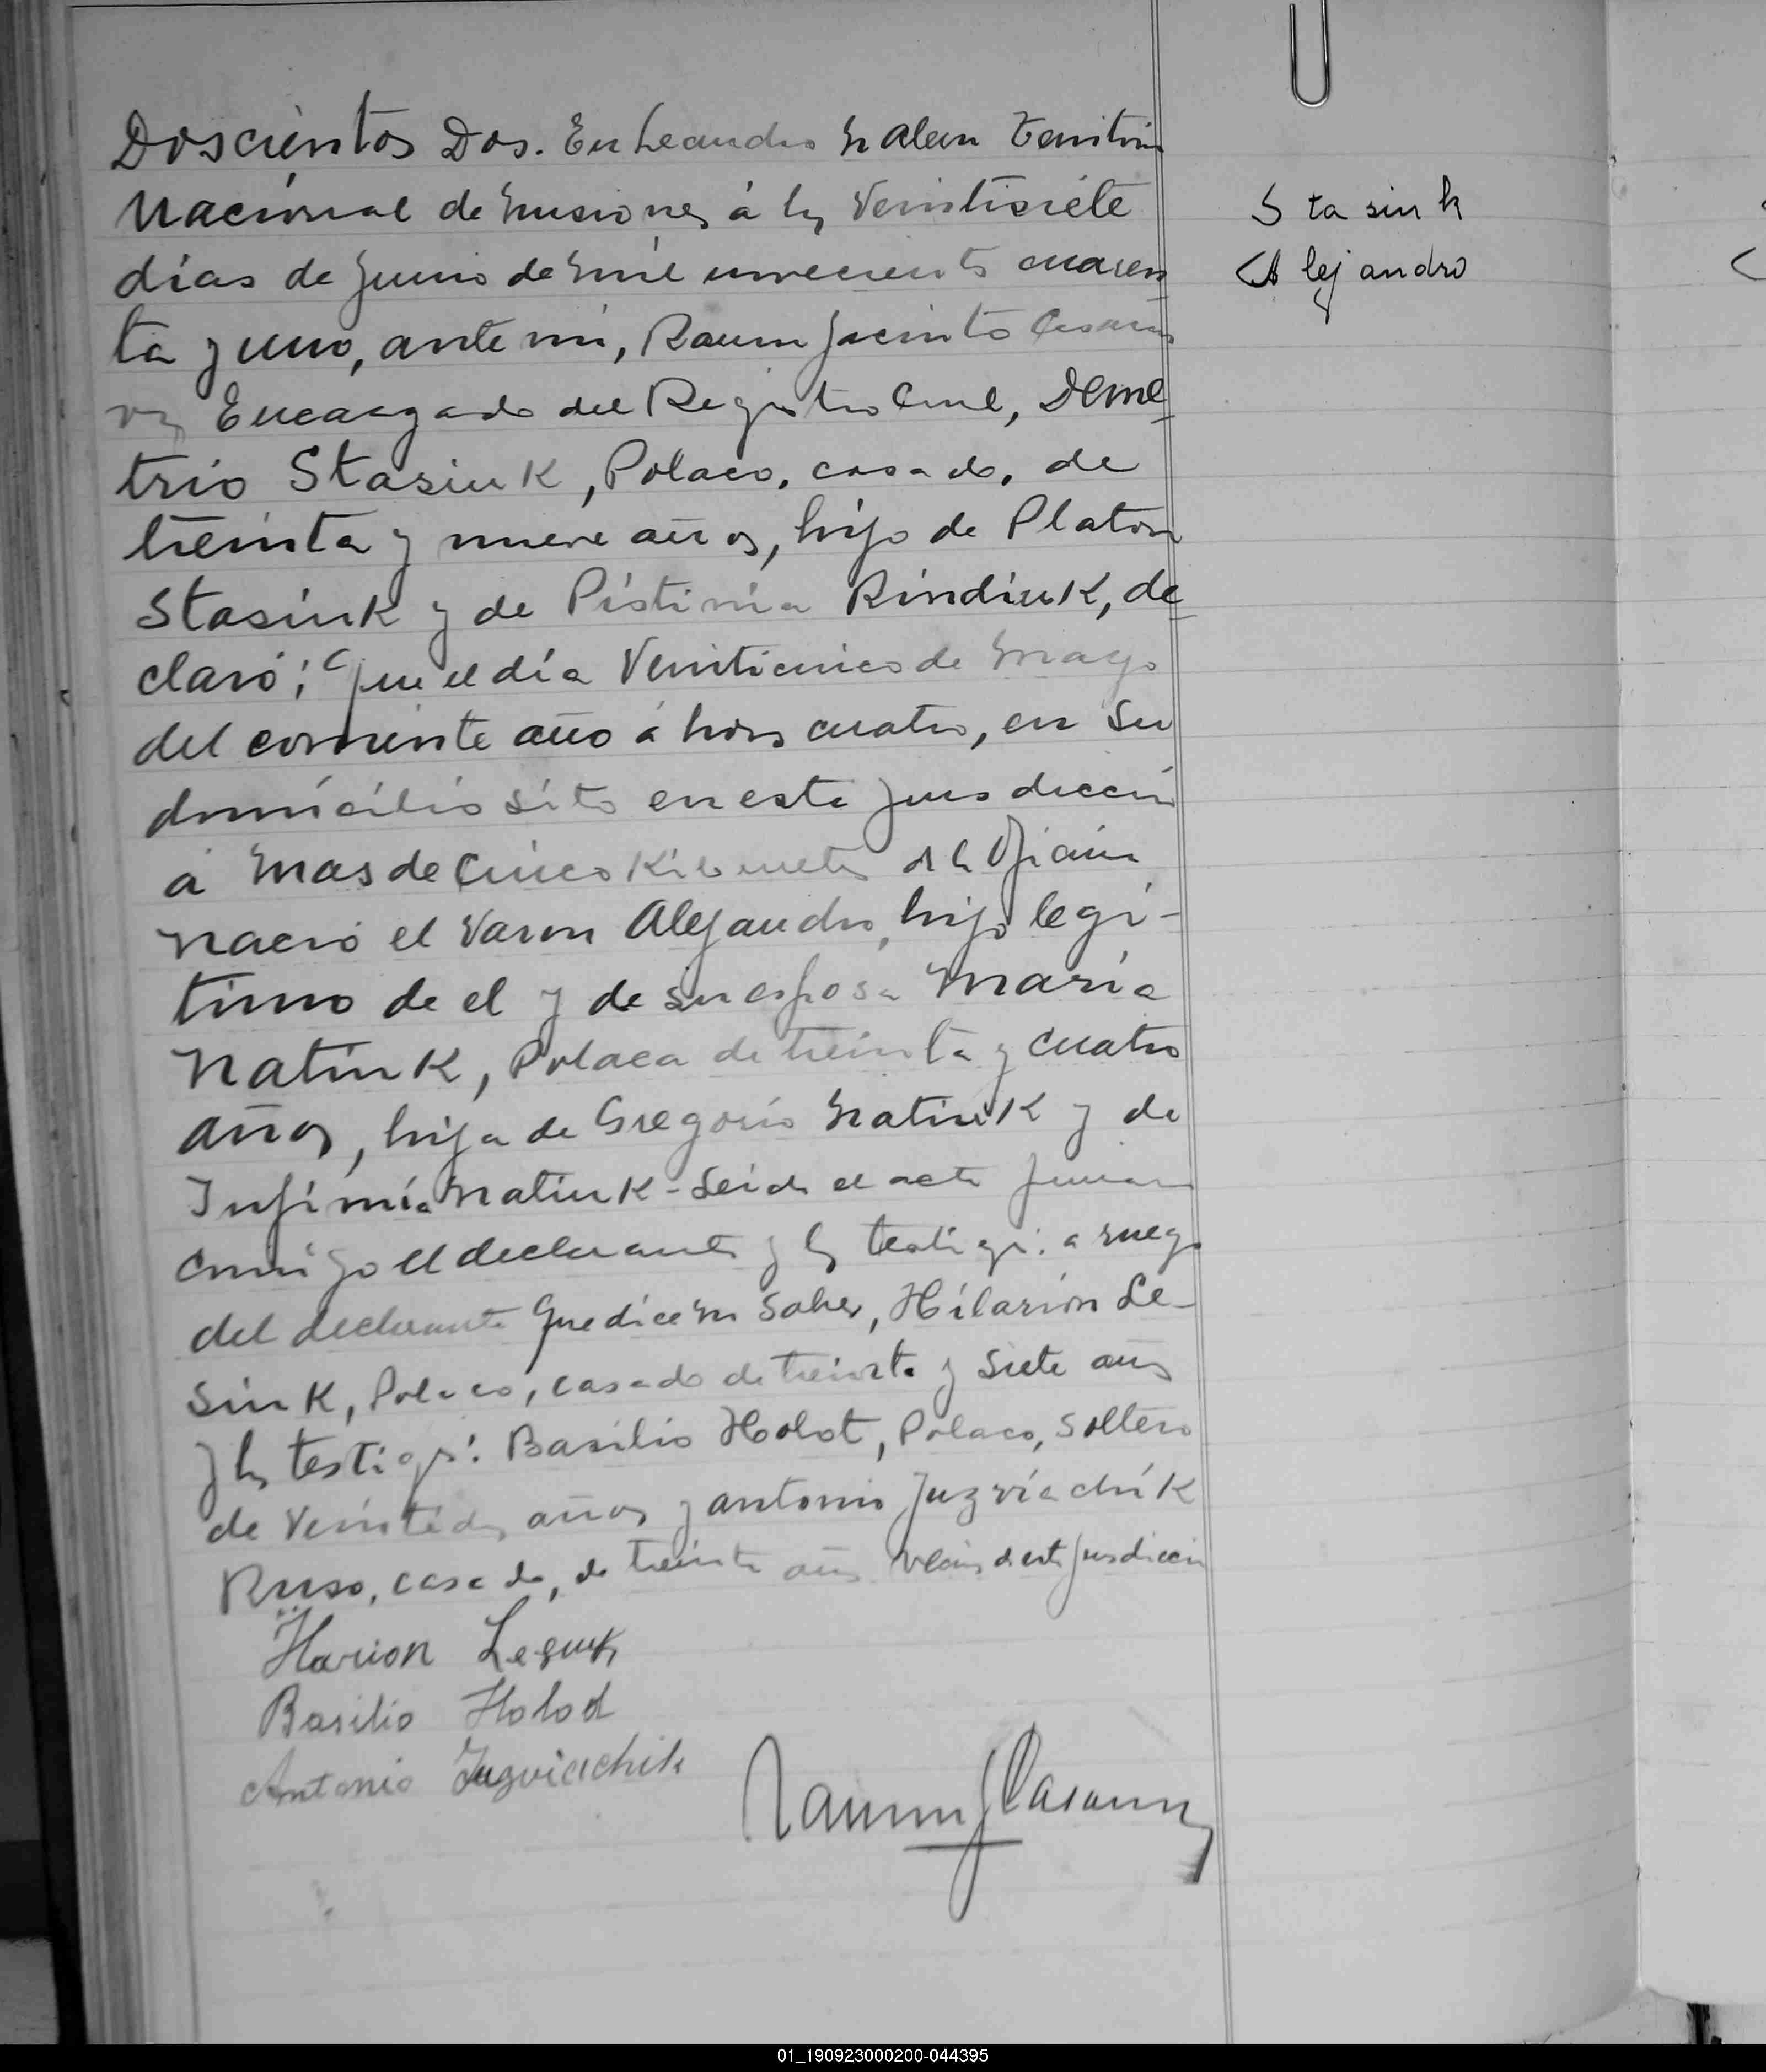 Doscientos Dos. En Leandro N Alem Territorio
Nacional de Misiones á los Veintisiete
días de Junio de Mil novecientos cuaren
ta y uno, ante mi, Ramon Jacinto Casano
vas Encargado del Registro Civil, Deme
trio Stasiuk, Polaco, casado, de
treinta y nueve años, hijo de Platon
Stasiuk y de Pistinia Rindiuk, de
claró: Que el día Veinticinco de Mayo
del corriente año á horas cuatro, en su
domicilio sito en esta jurisdiccion
á Mas de Cinco Kilometros de la Oficina
nacio el Varon Alejandro, hijo legi-
timo de el y de su esposa Maria
Natiuk, Polaca de treinta y cuatro
años, hija de Gregorio Natiuk y de
Infimia Natiuk - Leida el acta firman
conmigo el declarante y los testigos: a ruego
del declarante que dice no saber, Hilarion Le-
siuk, Polaco, casado de treinta y siete años
y los testigos: Basilio Holot, Polaco, Soltero
de Veintidos años y Antonio Juzviachik
Ruso, casado, de treinta años vecinos de esta jurisdiccion
Ilarion Lesiuk
Basilio Holod
Antonio Juzviachik
Ramon J Casanovas
Stasiuk
Alejandro
01_190923000200-044395